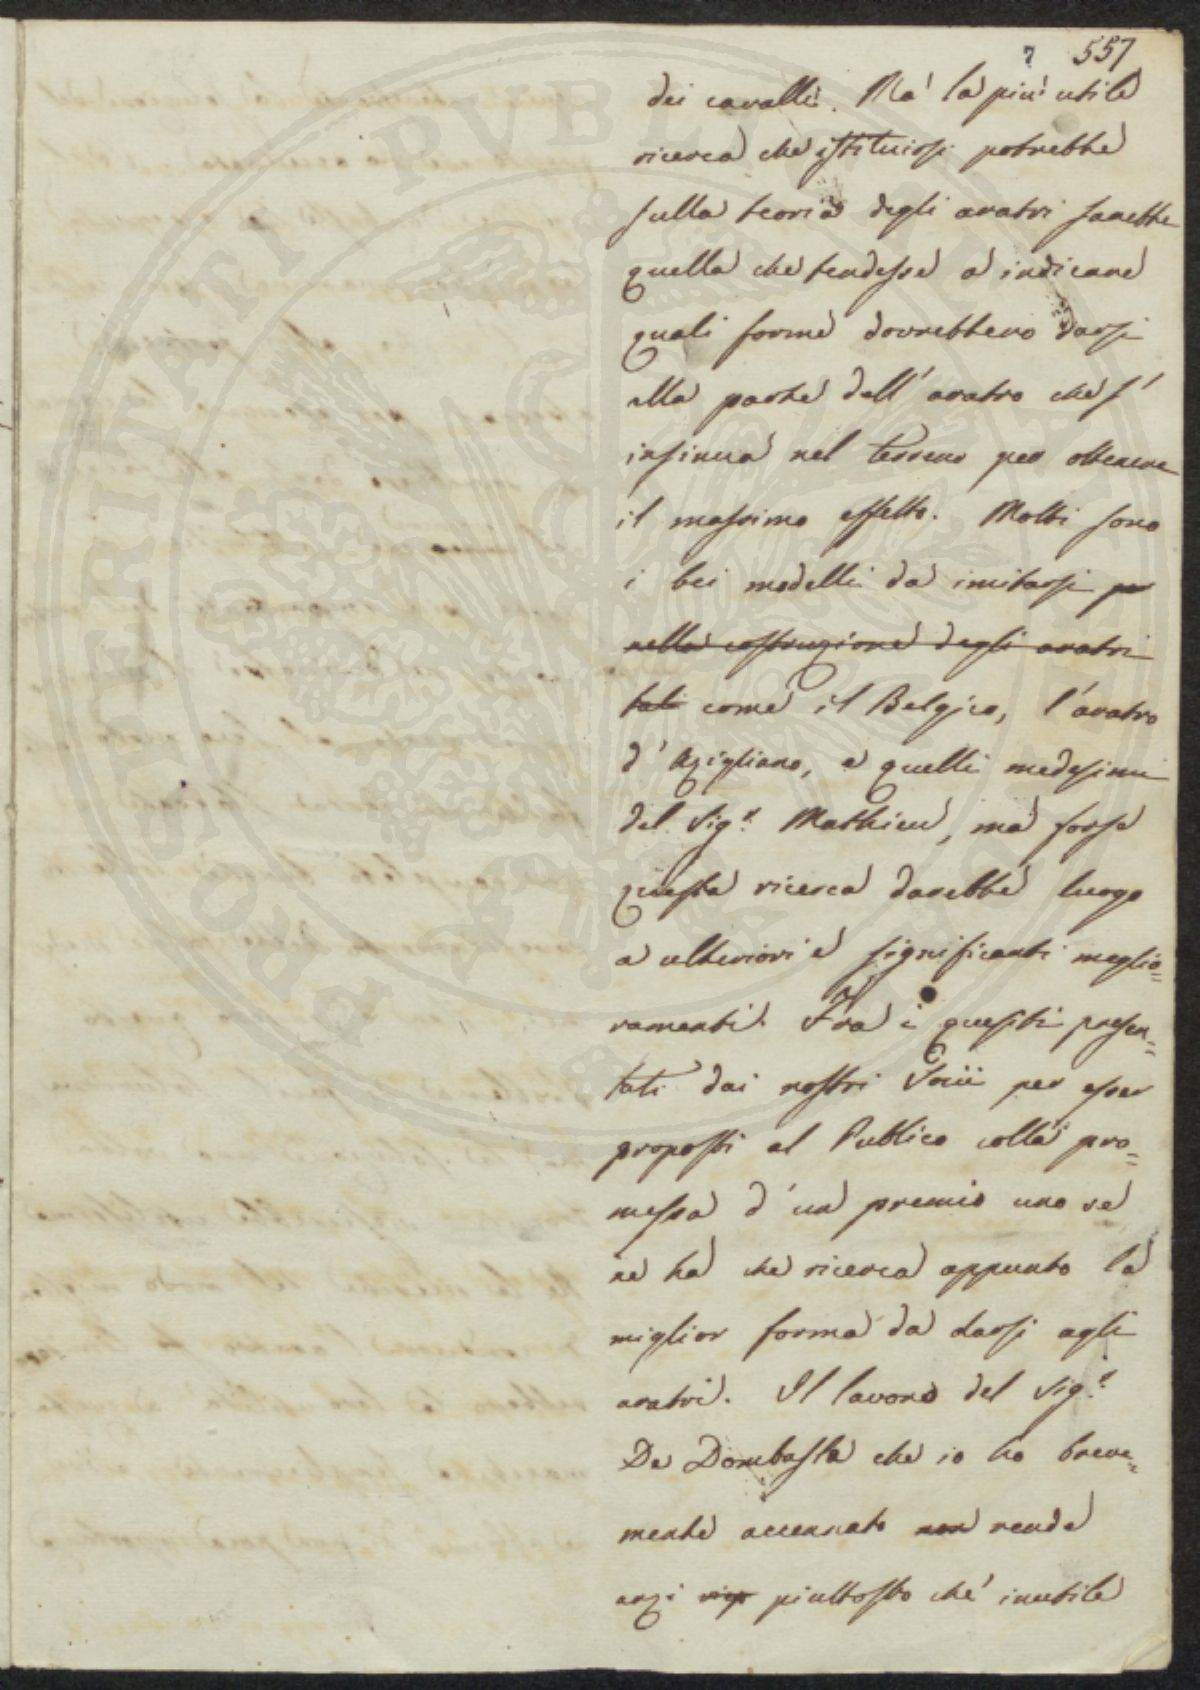 7 557
dei cavalli. Ma la più utile
ricerca che istituirsi potrebbe
sulla teoria degli aratri sarebbe
quella che tendesse a indicare
quali forme dovrebbero darsi
alla parte dell' aratro che s'
insinua nel terreno per ottenere
il massimo effetto. Molti sono
i bei modelli da imitarsi per
nella costruzione degli aratri
tali come il Belgico, l'aratro
d' Azigliano, e quelli medesimi
del Sig.r Mathieu, ma forse
questa ricerca darebbe luogo
a ulteriori e significanti meglio=
ramenti. Fra i quesiti presen=
tati dai nostri Socii per esser
proposti al Publico colla pro=
messa d' un premio uno se
ne ha che ricerca appunto la
miglior forma da darsi agli
aratri. Il lavoro del Sig.r
De Dombasle che io ho breve=
mente accennato non rende
anzi piuttosto che inutile
POSTERITATI PVBLICAE VTI